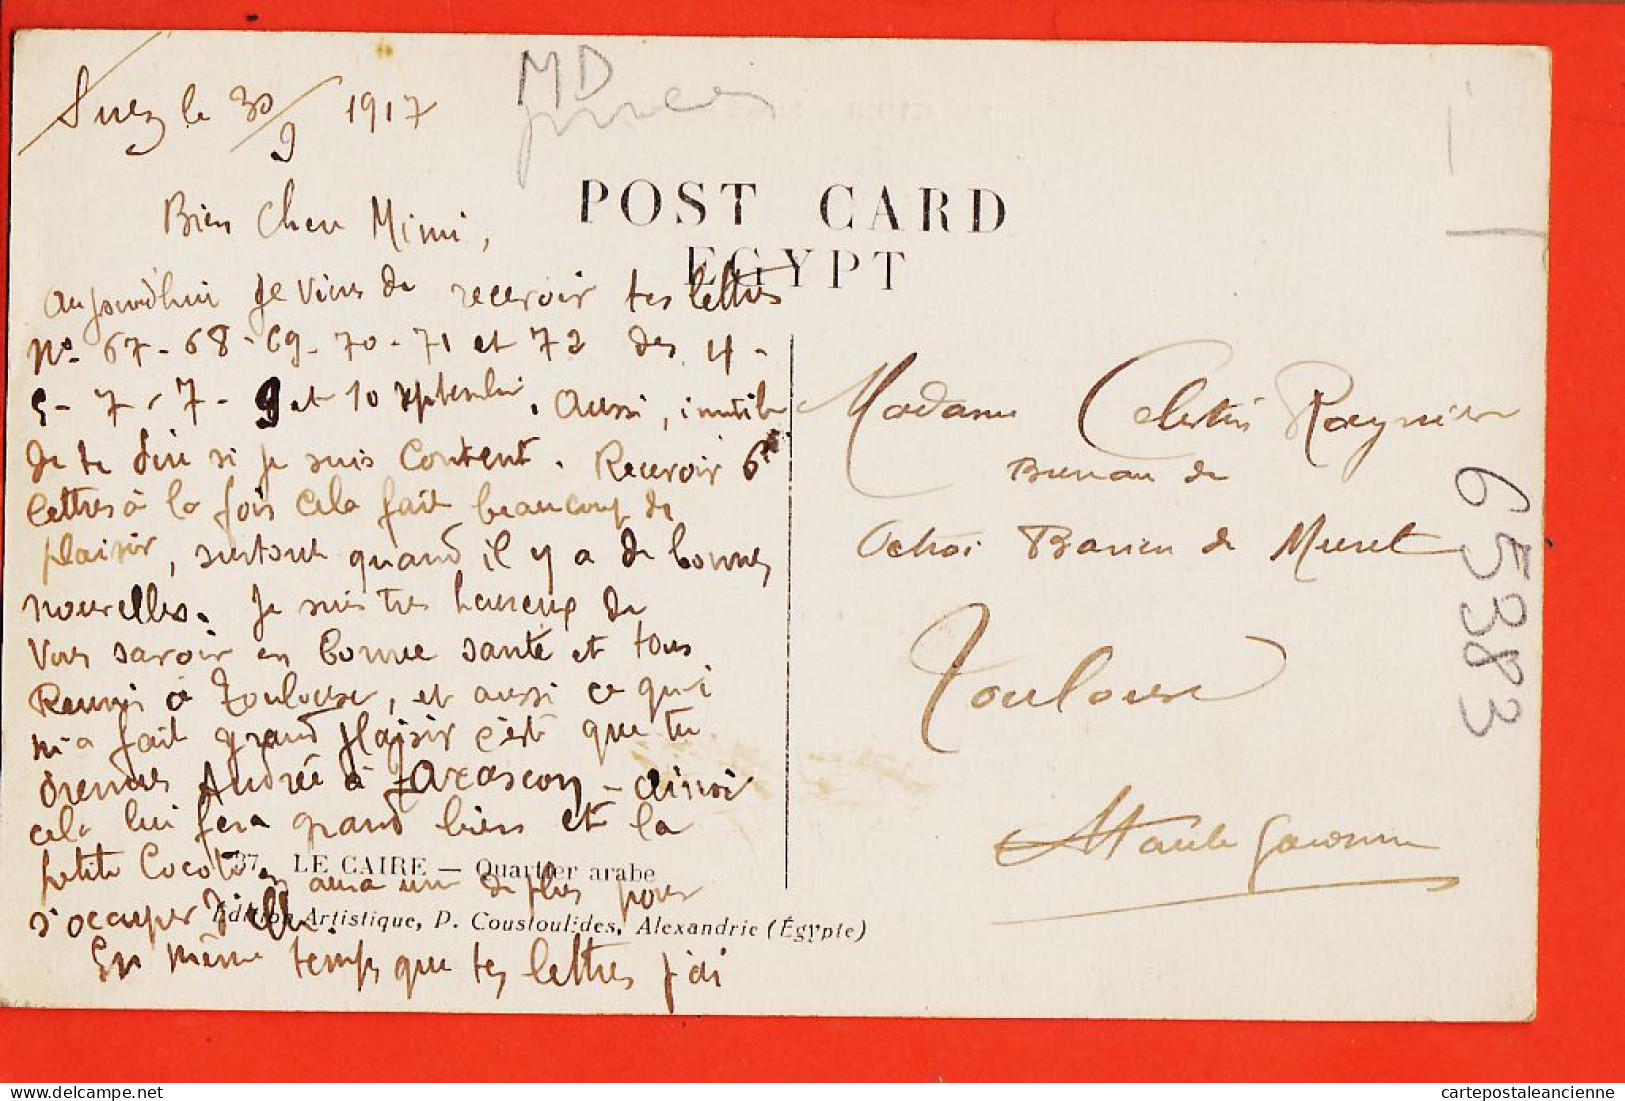 Suez le 30/9 1917
MD
Bien Cher Mimi,
POST CARD
EGYPT
Aujourd'hui je viens de recevoir tes lettres
No 67 - 68 - 69 - 70 - 71 et 72 des 4 -
5 - 7 - 7 - 9 et 10 septembre. Aussi, inutile
de te dire si je suis content. Recevoir 6
lettres à la fois cela fait beaucoup de
plaisir, surtout quand il y a de bonnes
nouvelles. Je suis très heureux de
vous savoir en bonne santé et tous
Reunis à Toulouse, et aussi ce qui
m'a fait grand plaisir c'est que tu
prennes Andrée à Tarascon - ainsi
cela lui fera grand bien et la
petite Cocotte en aura une de plus pour
s'occuper d'elle.
En même temps que tes lettres j'ai
37. LE CAIRE — Quartier arabe
Édition Artistique, P. Coustoulides, Alexandrie (Égypte)
Madame Celestin Raynier
Bureau de
Octroi Barien de Muret
Toulouse
Haute Garonne
65383
cartepostaleancienne